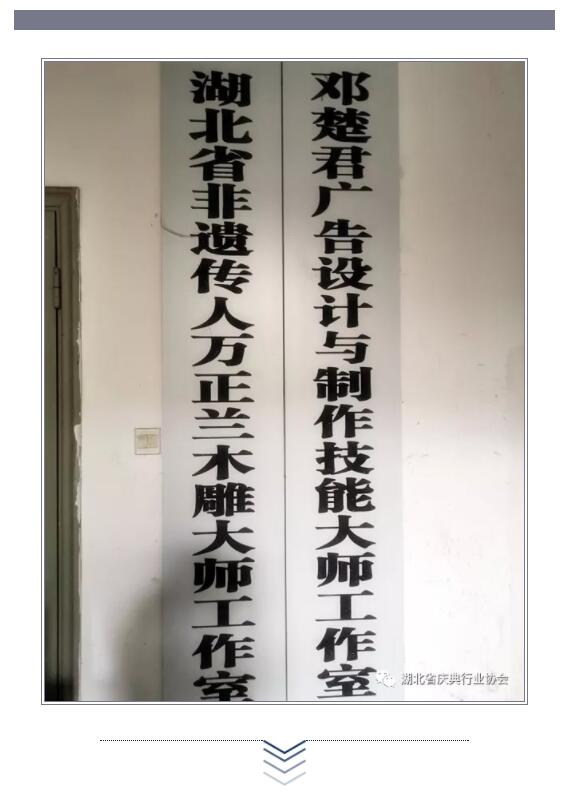 邓楚君广告设计与制作技能大师工作室
湖北省非遗传人万正兰木雕大师工作室
湖北省庆典行业协会